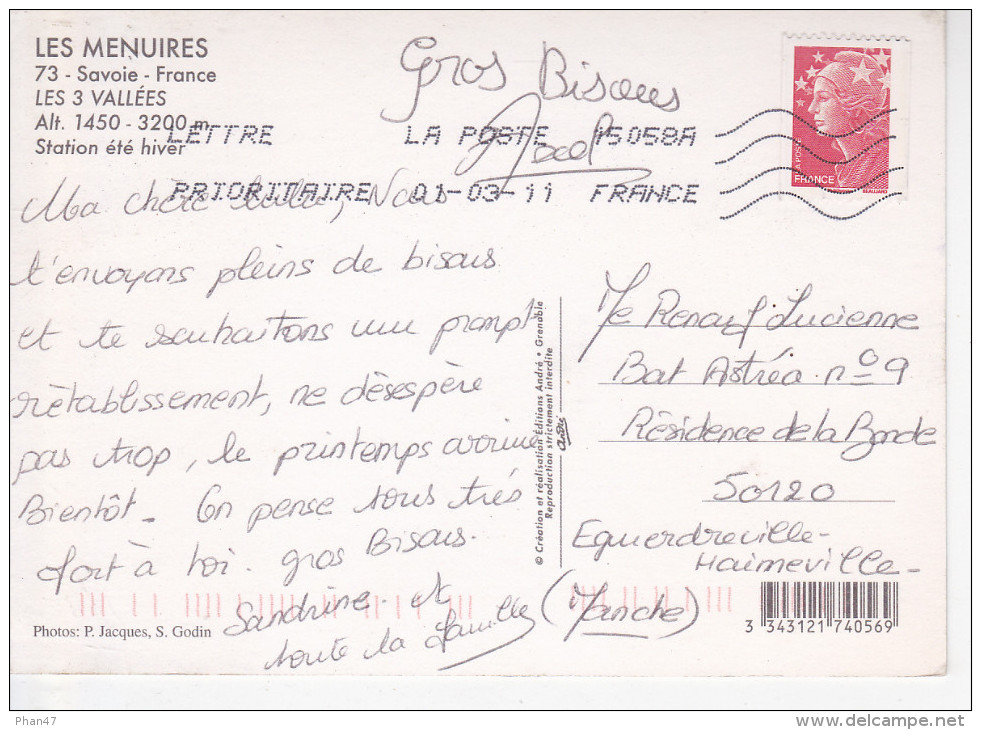 LES MENUIRES
73 - Savoie - France
LES 3 VALLÉES
Alt. 1450 - 3200 m
Station été hiver
Gros Bisous
Axel
LETTRE LA POSTE 15058A
PRIORITAIRE 01-03-11 FRANCE
LA POSTE
FRANCE
Ma chère Lulu, Nous
t'envoyons pleins de bisous
et te souhaitons un prompt
rétablissement, ne désespère
pas trop, le printemps arrive
Bientôt. On pense tous très
fort à toi. gros Bisous.
Sandrine et
toute la famille
© Création et réalisation Editions André • Grenoble
Reproduction strictement interdite
André
Me Renauf Lucienne
Bat Astréa n° 9
Résidence de la Bonde
50120
Equerdreville-
Haimeville-
(Manche)
Photos: P. Jacques, S. Godin
3 343121 740569
Phan47
delcampe.net